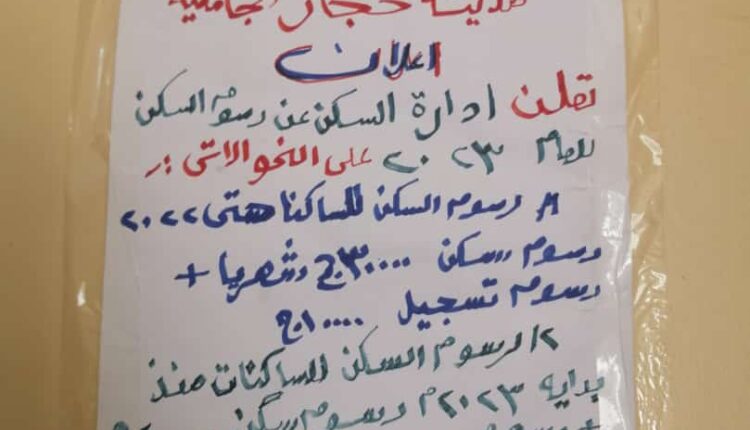 مدينة حجار الجامعية
اعلان
تعلن ادارة السكن عن رسوم السكن
للعام ٢٠٢٣ على النحو الاتى :ـ
١/ رسوم السكن للساكنا حتى ٢٠٢٢
رسوم سكن ٣٠.٠٠٠ج شهريا +
رسوم تسجيل ١٠.٠٠٠ج
٢/ رسوم السكن للساكنات منذ
بداية ٢٠٢٣م رسوم سكن